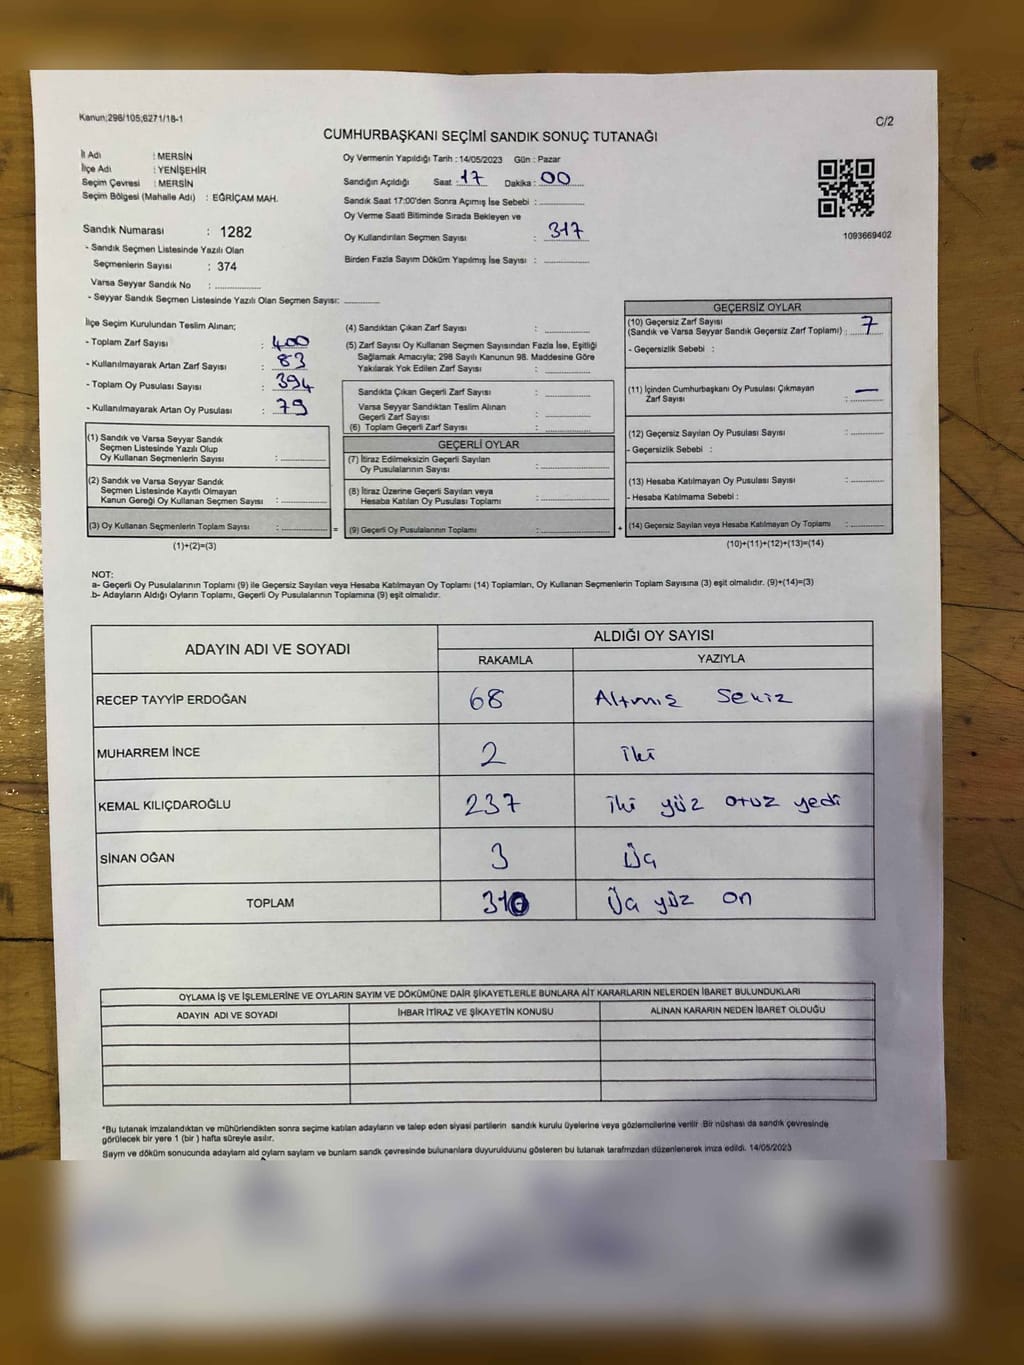 Kanun;298/105;6271/18-1
C/2
CUMHURBAŞKANI SEÇİMİ SANDIK SONUÇ TUTANAĞI
İl Adı : MERSİN
İlçe Adı : YENİŞEHİR
Seçim Çevresi : MERSİN
Seçim Bölgesi (Mahalle Adı) : EĞRİÇAM MAH.
Sandık Numarası : 1282
- Sandık Seçmen Listesinde Yazılı Olan
Seçmenlerin Sayısı : 374
Varsa Seyyar Sandık No :
- Seyyar Sandık Seçmen Listesinde Yazılı Olan Seçmen Sayısı:
Oy Vermenin Yapıldığı Tarih : 14/05/2023 Gün : Pazar
Sandığın Açıldığı Saat : 17 Dakika : 00
Sandık Saat 17:00'den Sonra Açımış İse Sebebi :
Oy Verme Saati Bitiminde Sırada Bekleyen ve
Oy Kullandırılan Seçmen Sayısı : 317
Birden Fazla Sayım Döküm Yapılmış İse Sayısı :
1093669402
İlçe Seçim Kurulundan Teslim Alınan;
- Toplam Zarf Sayısı : 400
- Kullanılmayarak Artan Zarf Sayısı : 83
- Toplam Oy Pusulası Sayısı : 394
- Kullanılmayarak Artan Oy Pusulası : 79
(1) Sandık ve Varsa Seyyar Sandık
Seçmen Listesinde Yazılı Olup
Oy Kullanan Seçmenlerin Sayısı :
(2) Sandık ve Varsa Seyyar Sandık
Seçmen Listesinde Kayıtlı Olmayan
Kanun Gereği Oy Kullanan Seçmen Sayısı :
(3) Oy Kullanan Seçmenlerin Toplam Sayısı : =
(1)+(2)=(3)
(4) Sandıktan Çıkan Zarf Sayısı :
(5) Zarf Sayısı Oy Kullanan Seçmen Sayısından Fazla İse, Eşitliği
Sağlamak Amacıyla; 298 Sayılı Kanunun 98. Maddesine Göre
Yakılarak Yok Edilen Zarf Sayısı :
Sandıkta Çıkan Geçerli Zarf Sayısı :
Varsa Seyyar Sandıktan Teslim Alınan
Geçerli Zarf Sayısı :
(6) Toplam Geçerli Zarf Sayısı :
GEÇERLİ OYLAR
(7) İtiraz Edilmeksizin Geçerli Sayılan
Oy Pusulalarının Sayısı :
(8) İtiraz Üzerine Geçerli Sayılan veya
Hesaba Katılan Oy Pusulası Toplamı :
(9) Geçerli Oy Pusulalarının Toplamı : +
GEÇERSİZ OYLAR
(10) Geçersiz Zarf Sayısı
(Sandık ve Varsa Seyyar Sandık Geçersiz Zarf Toplamı) : 7
- Geçersizlik Sebebi :
(11) İçinden Cumhurbaşkanı Oy Pusulası Çıkmayan
Zarf Sayısı : —
(12) Geçersiz Sayılan Oy Pusulası Sayısı :
- Geçersizlik Sebebi :
(13) Hesaba Katılmayan Oy Pusulası Sayısı :
- Hesaba Katılmama Sebebi :
(14) Geçersiz Sayılan veya Hesaba Katılmayan Oy Toplamı :
(10)+(11)+(12)+(13)=(14)
NOT:
a- Geçerli Oy Pusulalarının Toplamı (9) ile Geçersiz Sayılan veya Hesaba Katılmayan Oy Toplamı (14) Toplamları, Oy Kullanan Seçmenlerin Toplam Sayısına (3) eşit olmalıdır. (9)+(14)=(3)
b- Adayların Aldığı Oyların Toplamı, Geçerli Oy Pusulalarının Toplamına (9) eşit olmalıdır.
ADAYIN ADI VE SOYADI ALDIĞI OY SAYISI
RAKAMLA YAZIYLA
RECEP TAYYİP ERDOĞAN 68 Altmış Sekiz
MUHARREM İNCE 2 İki
KEMAL KILIÇDAROĞLU 237 İki yüz otuz yedi
SİNAN OĞAN 3 Üç
TOPLAM 310 Üç yüz on
OYLAMA İŞ VE İŞLEMLERİNE VE OYLARIN SAYIM VE DÖKÜMÜNE DAİR ŞİKAYETLERLE BUNLARA AİT KARARLARIN NELERDEN İBARET BULUNDUKLARI
ADAYIN ADI VE SOYADI İHBAR İTİRAZ VE ŞİKAYETİN KONUSU ALINAN KARARIN NEDEN İBARET OLDUĞU
*Bu tutanak imzalandıktan ve mühürlendikten sonra seçime katılan adayların ve talep eden siyasi partilerin sandık kurulu üyelerine veya gözlemcilerine verilir .Bir nüshası da sandık çevresinde
görülecek bir yere 1 (bir ) hafta süreyle asılır.
Sayım ve döküm sonucunda adayların ald oyların sayların ve bunların sandk çevresinde bulunanlara duyurulduunu gösteren bu tutanak tarafmzdan düzenlenerek imza edildi. 14/05/2023